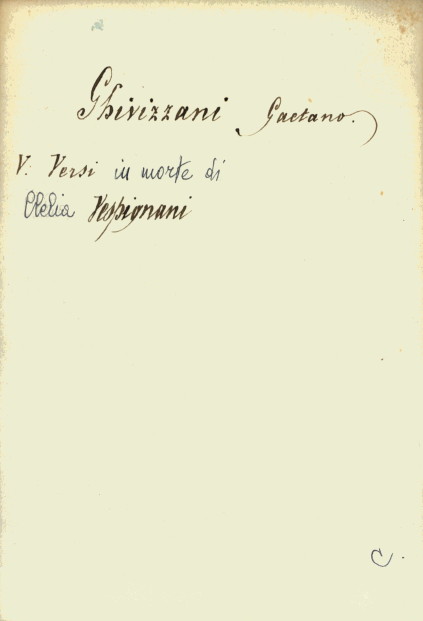 Ghivizzani Gaetano.
V. Versi in morte di
Clelia Vespignani
C.